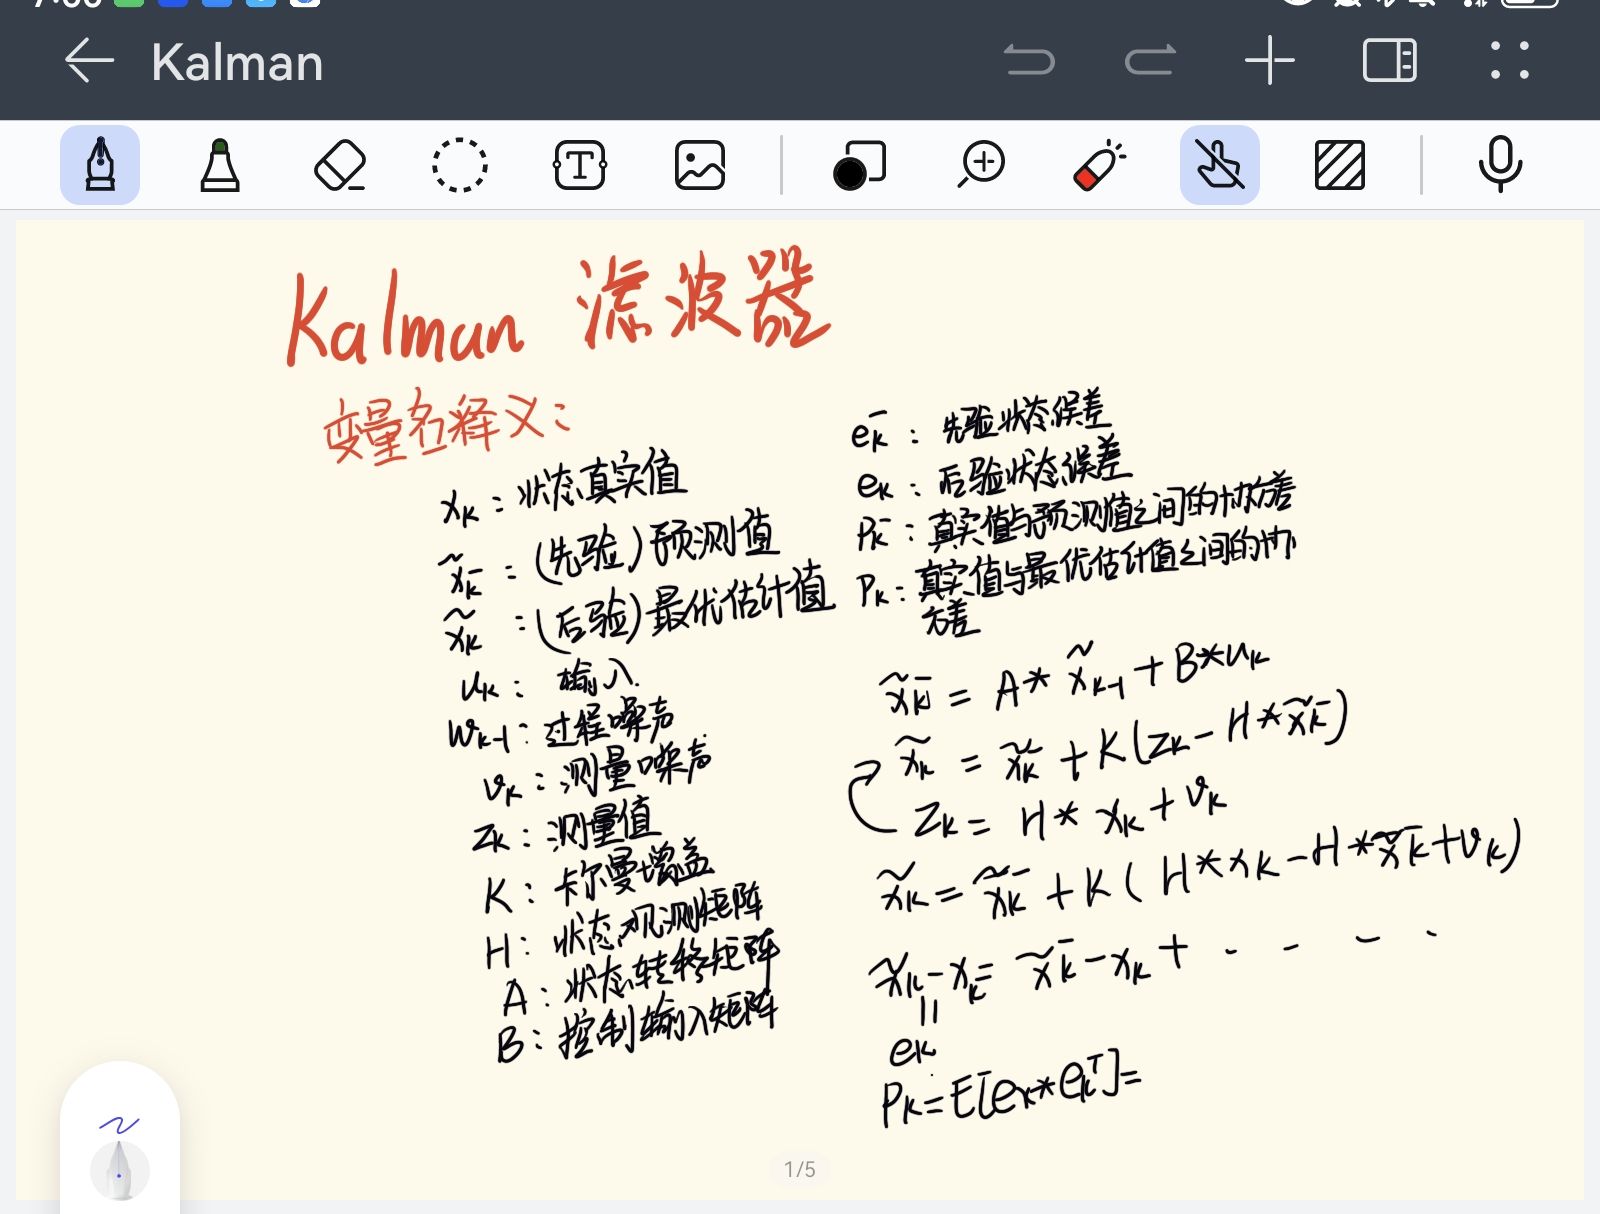 Kalman
Kalman 滤波器
变量名释义:
xₖ : 状态真实值
x̃ₖ⁻ : (先验)预测值
x̃ₖ : (后验)最优估计值
uₖ : 输入
wₖ₋₁ : 过程噪声
vₖ : 测量噪声
zₖ : 测量值
K : 卡尔曼增益
H : 状态观测矩阵
A : 状态转移矩阵
B : 控制输入矩阵
eₖ⁻ : 先验状态误差
eₖ : 后验状态误差
Pₖ⁻ : 真实值与预测值之间的协方差
Pₖ : 真实值与最优估计值之间的协
方差
x̃ₖ⁻ = A * x̃ₖ₋₁ + B * uₖ
x̃ₖ = x̃ₖ⁻ + K(zₖ - H * x̃ₖ⁻)
zₖ = H * xₖ + vₖ
x̃ₖ = x̃ₖ⁻ + K(H * xₖ - H * x̃ₖ⁻ + vₖ)
x̃ₖ - xₖ = x̃ₖ⁻ - xₖ + - - - -
=
eₖ
Pₖ = E[eₖ * eₖᵀ] =
1/5